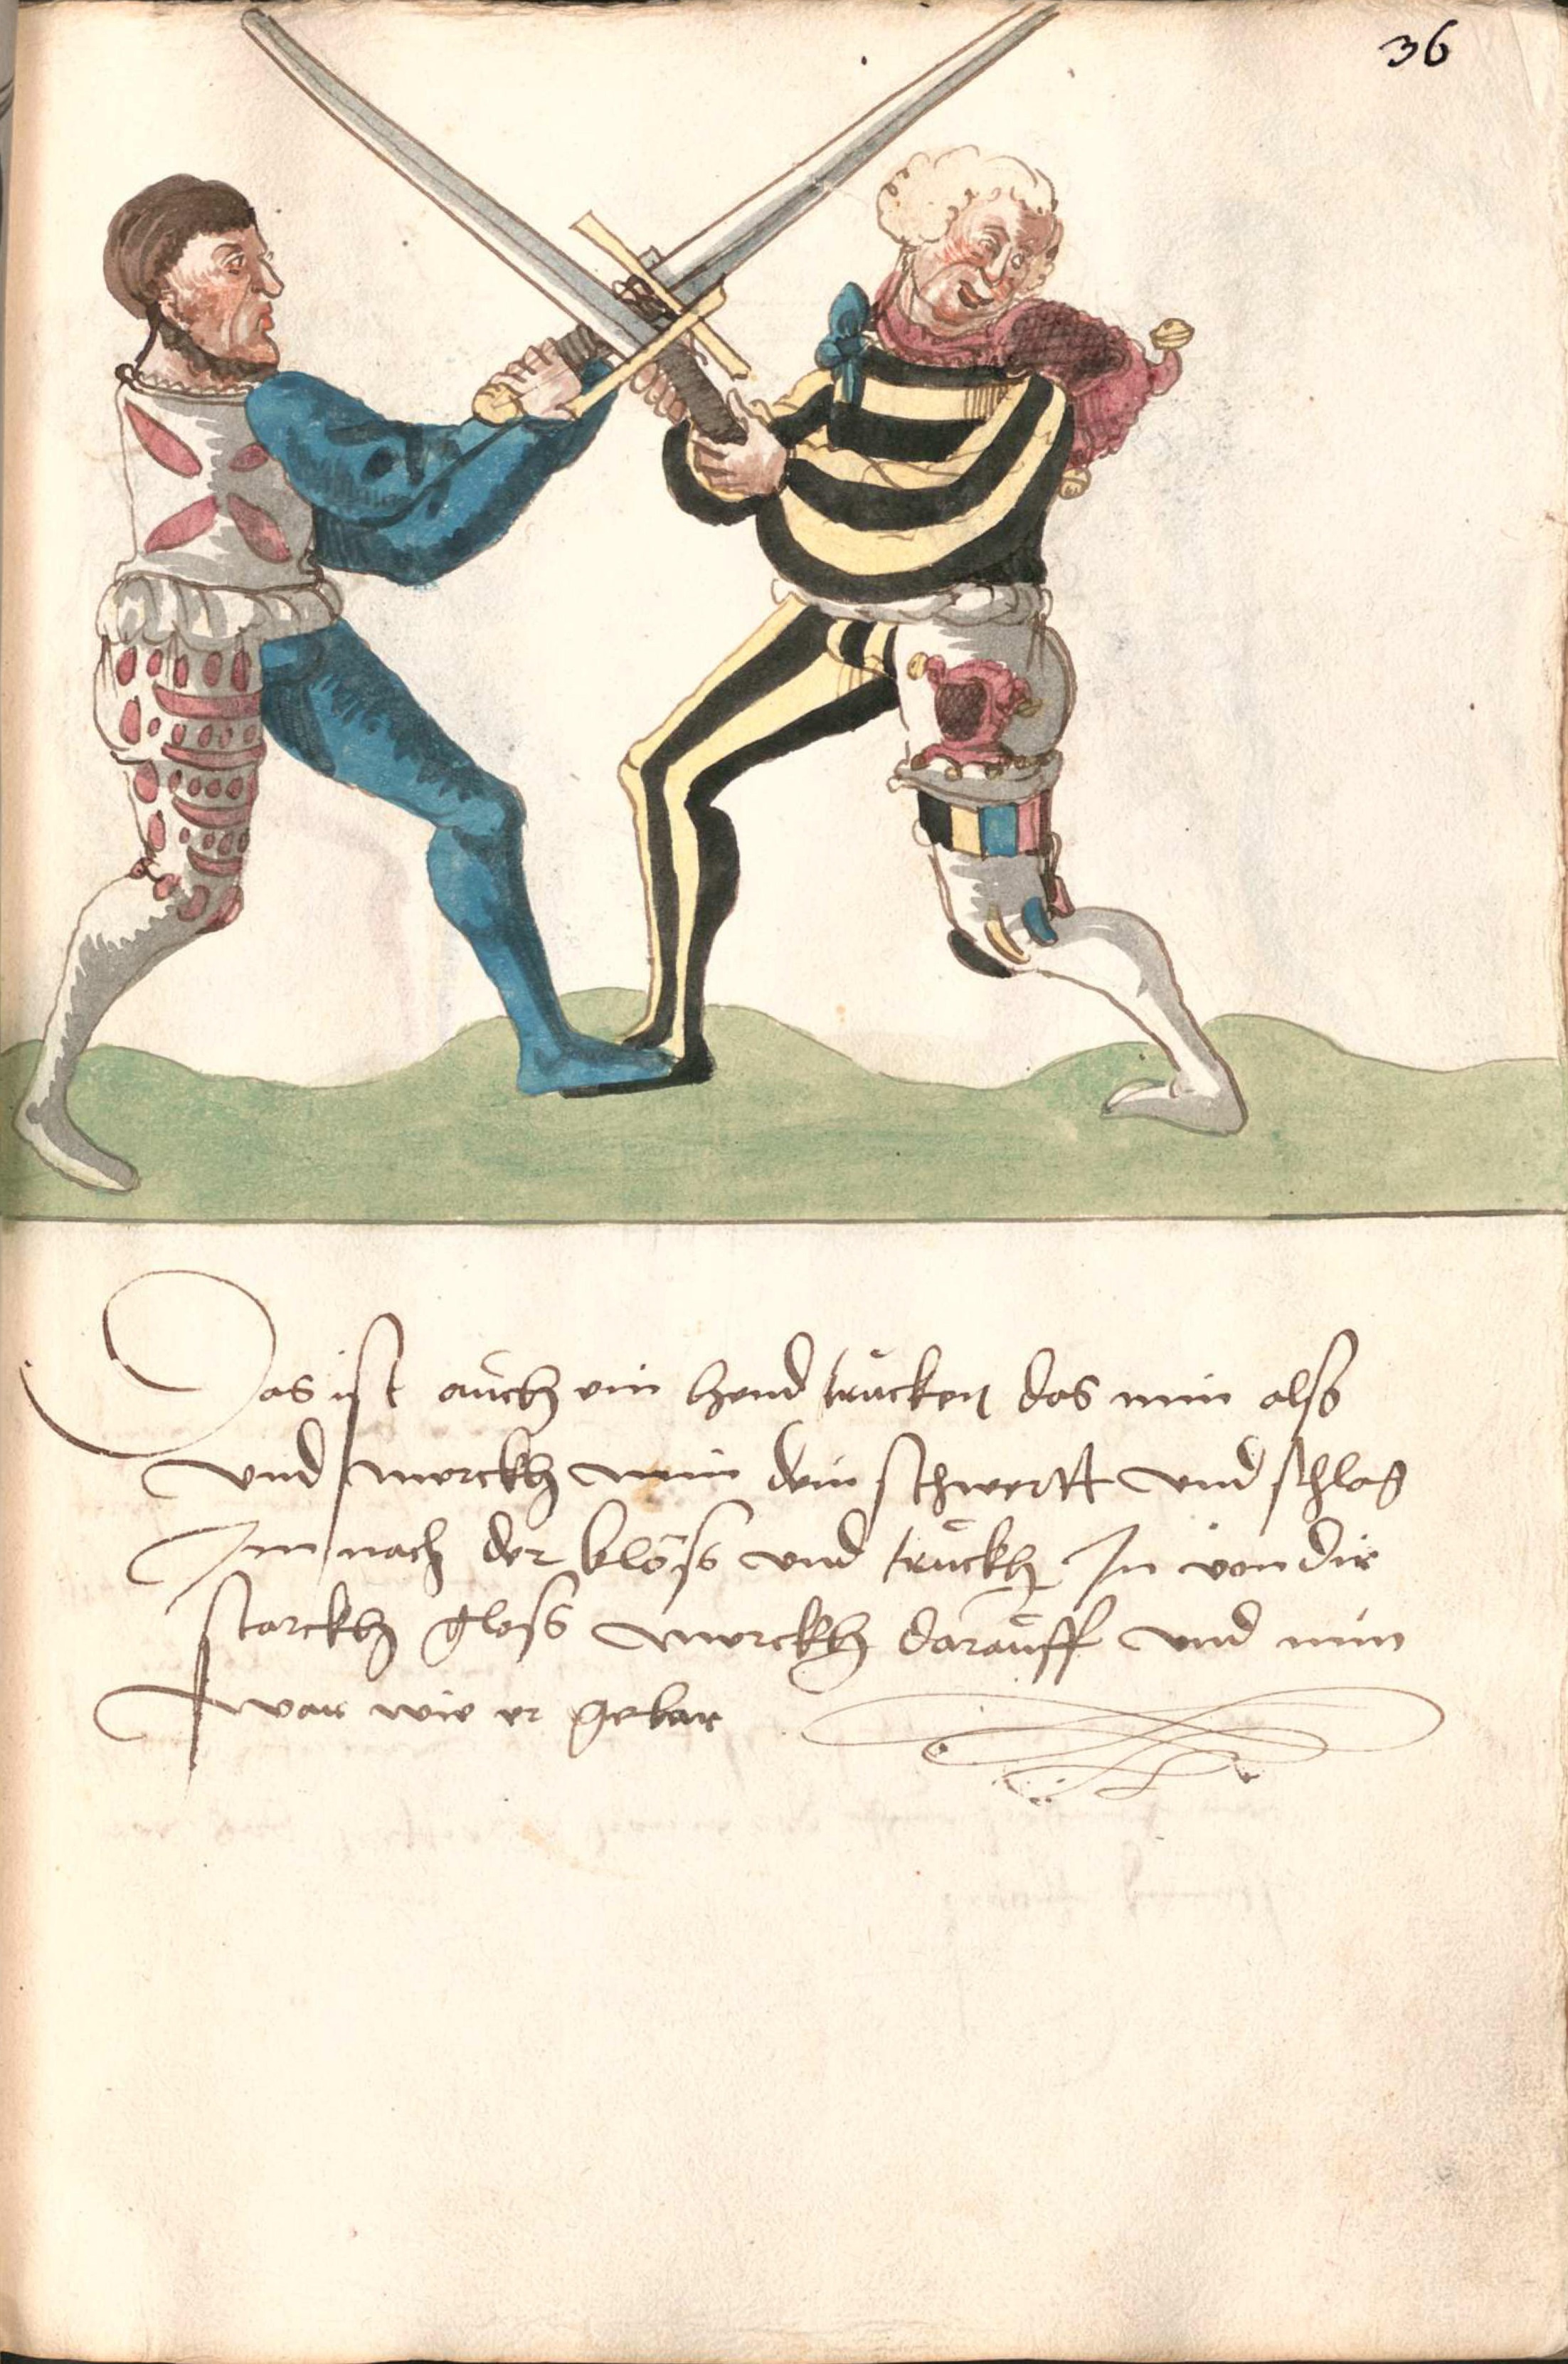 36
Das ist aůch ein hend trůcken das nim alss
vnd merckh nim dein schwertt vnd schlag
Im nach der blöss vnd trůckh In von dir
starckh gloss merckh daraůff vnd nim
war wie er gebar